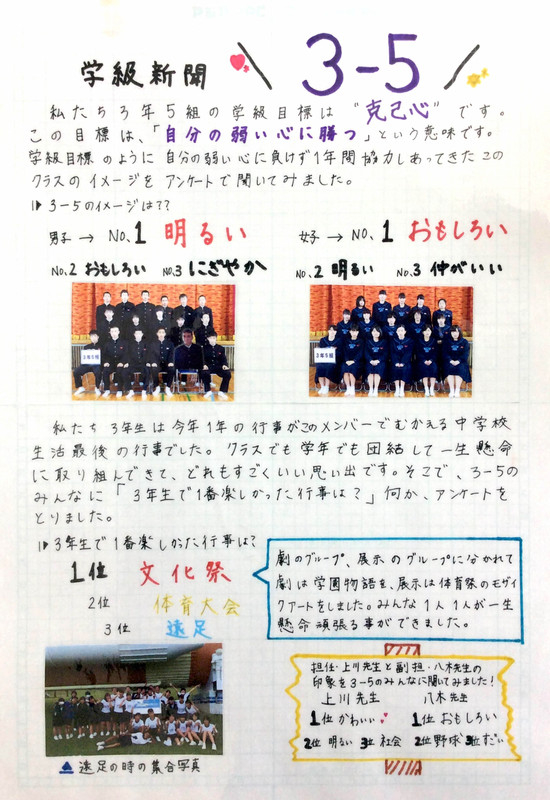 学級新聞 3-5
私たち3年5組の学級目標は "克己心" です。
この目標は、「自分の弱い心に勝つ」という意味です。
学級目標のように自分の弱い心に負けず1年間協力しあってきたこの
クラスのイメージをアンケートで聞いてみました。
3-5のイメージは??
男子 → NO.1 明るい
NO.2 おもしろい NO.3 にぎやか
女子 → NO.1 おもしろい
NO.2 明るい NO.3 仲がいい
3年5組
3年5組
私たち3年生は今年1年の行事がこのメンバーでむかえる中学校
生活最後の行事でした。クラスでも学年でも団結して一生懸命
に取り組んできて、どれもすごくいい思い出です。そこで、3-5の
みんなに「3年生で1番楽しかった行事は?」何か、アンケートを
とりました。
3年生で1番楽しかった行事は?
1位 文化祭
2位 体育大会
3位 遠足
劇のグループ、展示のグループに分かれて
劇は学園物語を、展示は体育祭のモザイ
クアートをしました。みんな1人1人が一生
懸命頑張る事ができました。
遠足の時の集合写真
担任・上川先生と副担・八木先生の
印象を3-5のみんなに聞いてみました!
上川先生
1位 かわいい
2位 明るい 3位 社会
八木先生
1位 おもしろい
2位 野球 3位